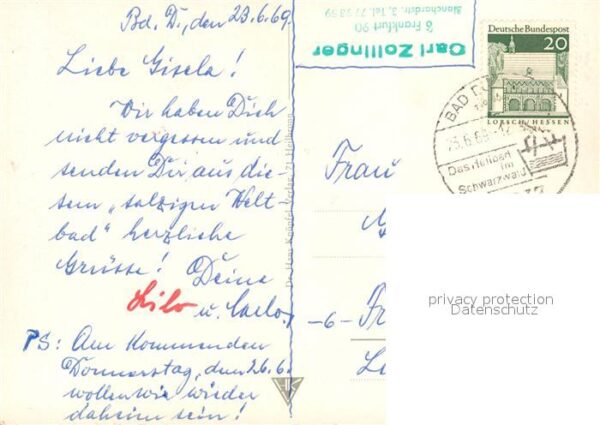 Bd. D., den 23.6.69.
Liebe Gisela!
Wir haben Dich
nicht vergessen und
senden Dir aus die-
sem „salzigen Welt-
bad" herzliche
Grüsse! Deine
Lilo u. Carlo.
PS: Am Kommenden
Donnerstag, den 26.6.
wollen wir wieder
daheim sein!
Carl Zollinger
6 Frankfurt 90
Blanchardstr. 3, Tel. 77 93 39
Deutsche Bundespost
20
LORSCH/HESSEN
BAD
23.6.69
Das
im
Schwarzwald
Frau
-6- Fr
privacy protection
Datenschutz